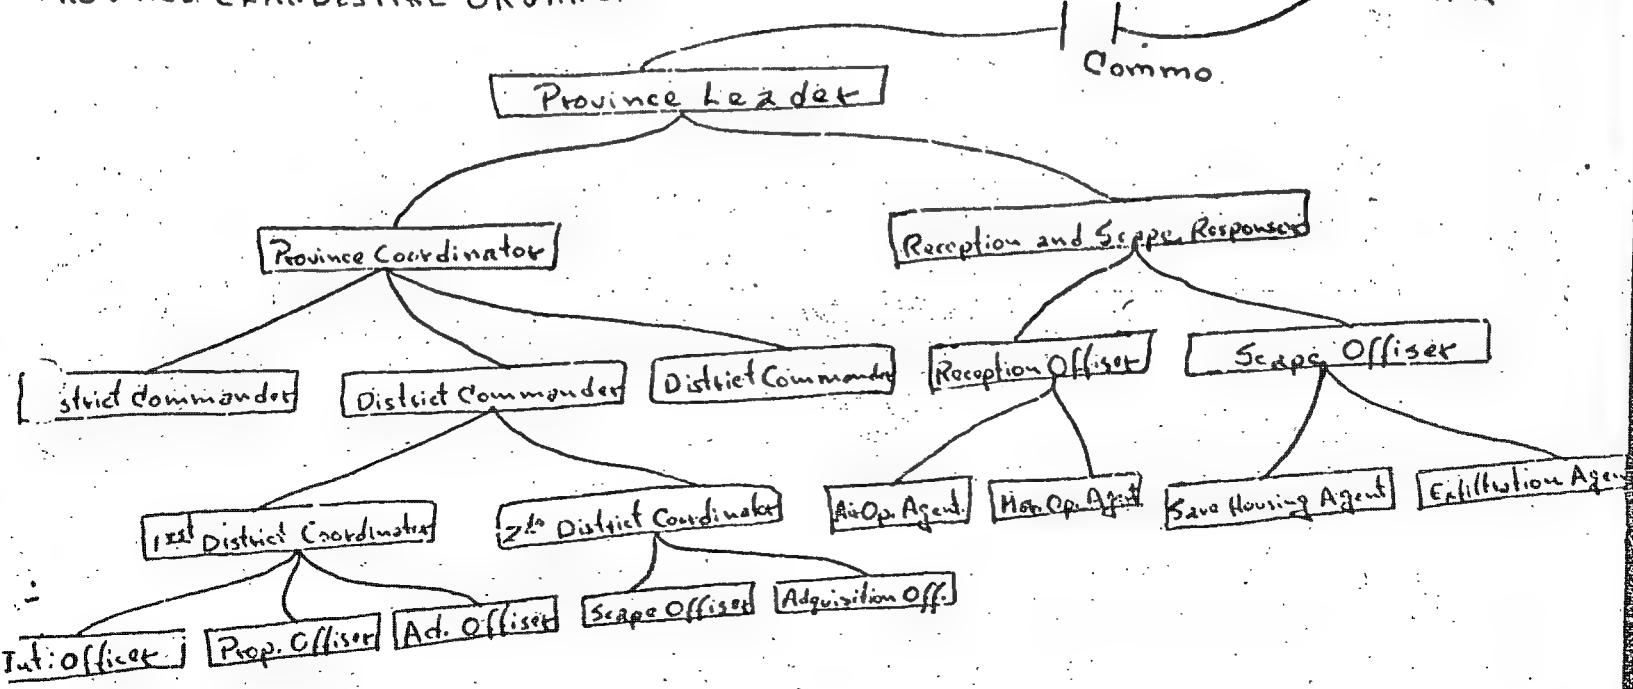 CLANDESTINE
Commo
Province Leader
Province Coordinator
Reception and Scape Responser
strict Commander
District Commander
District Commander
Reception Offiser
Scape Offiser
1rst District Coordinator
2th District Coordinator
Air Op. Agent
Op. Agent
Save Housing Agent
Exfiltration Agen
Int. Officer
Prop. Offiser
Act. Offiser
Scape Offiser
Adquisition Off.